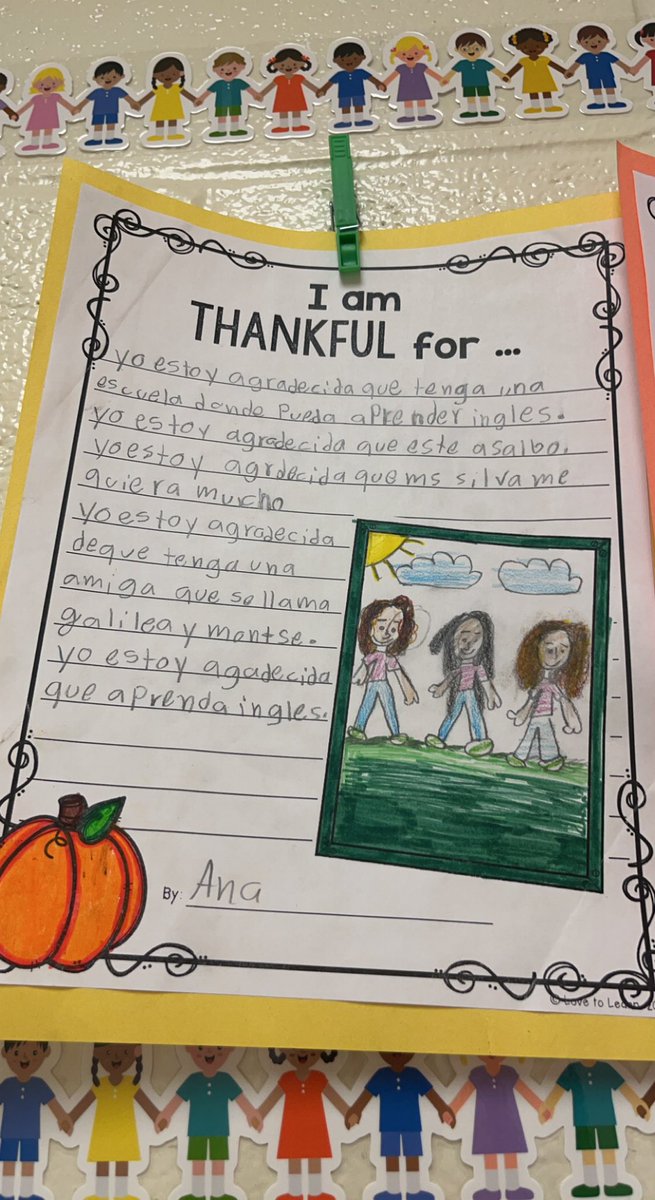 I am
THANKFUL for ...
yo estoy agradecida que tenga una
escuela donde Pueda aPrender ingles.
yo estoy agradecida que este asalbo.
yo estoy agrdecida que ms silva me
quiera mucho
yo estoy agradecida
deque tenga una
amiga que se llama
galilea y montse.
yo estoy agadecida
que aprenda ingles.
By: Ana
© Love to Learn